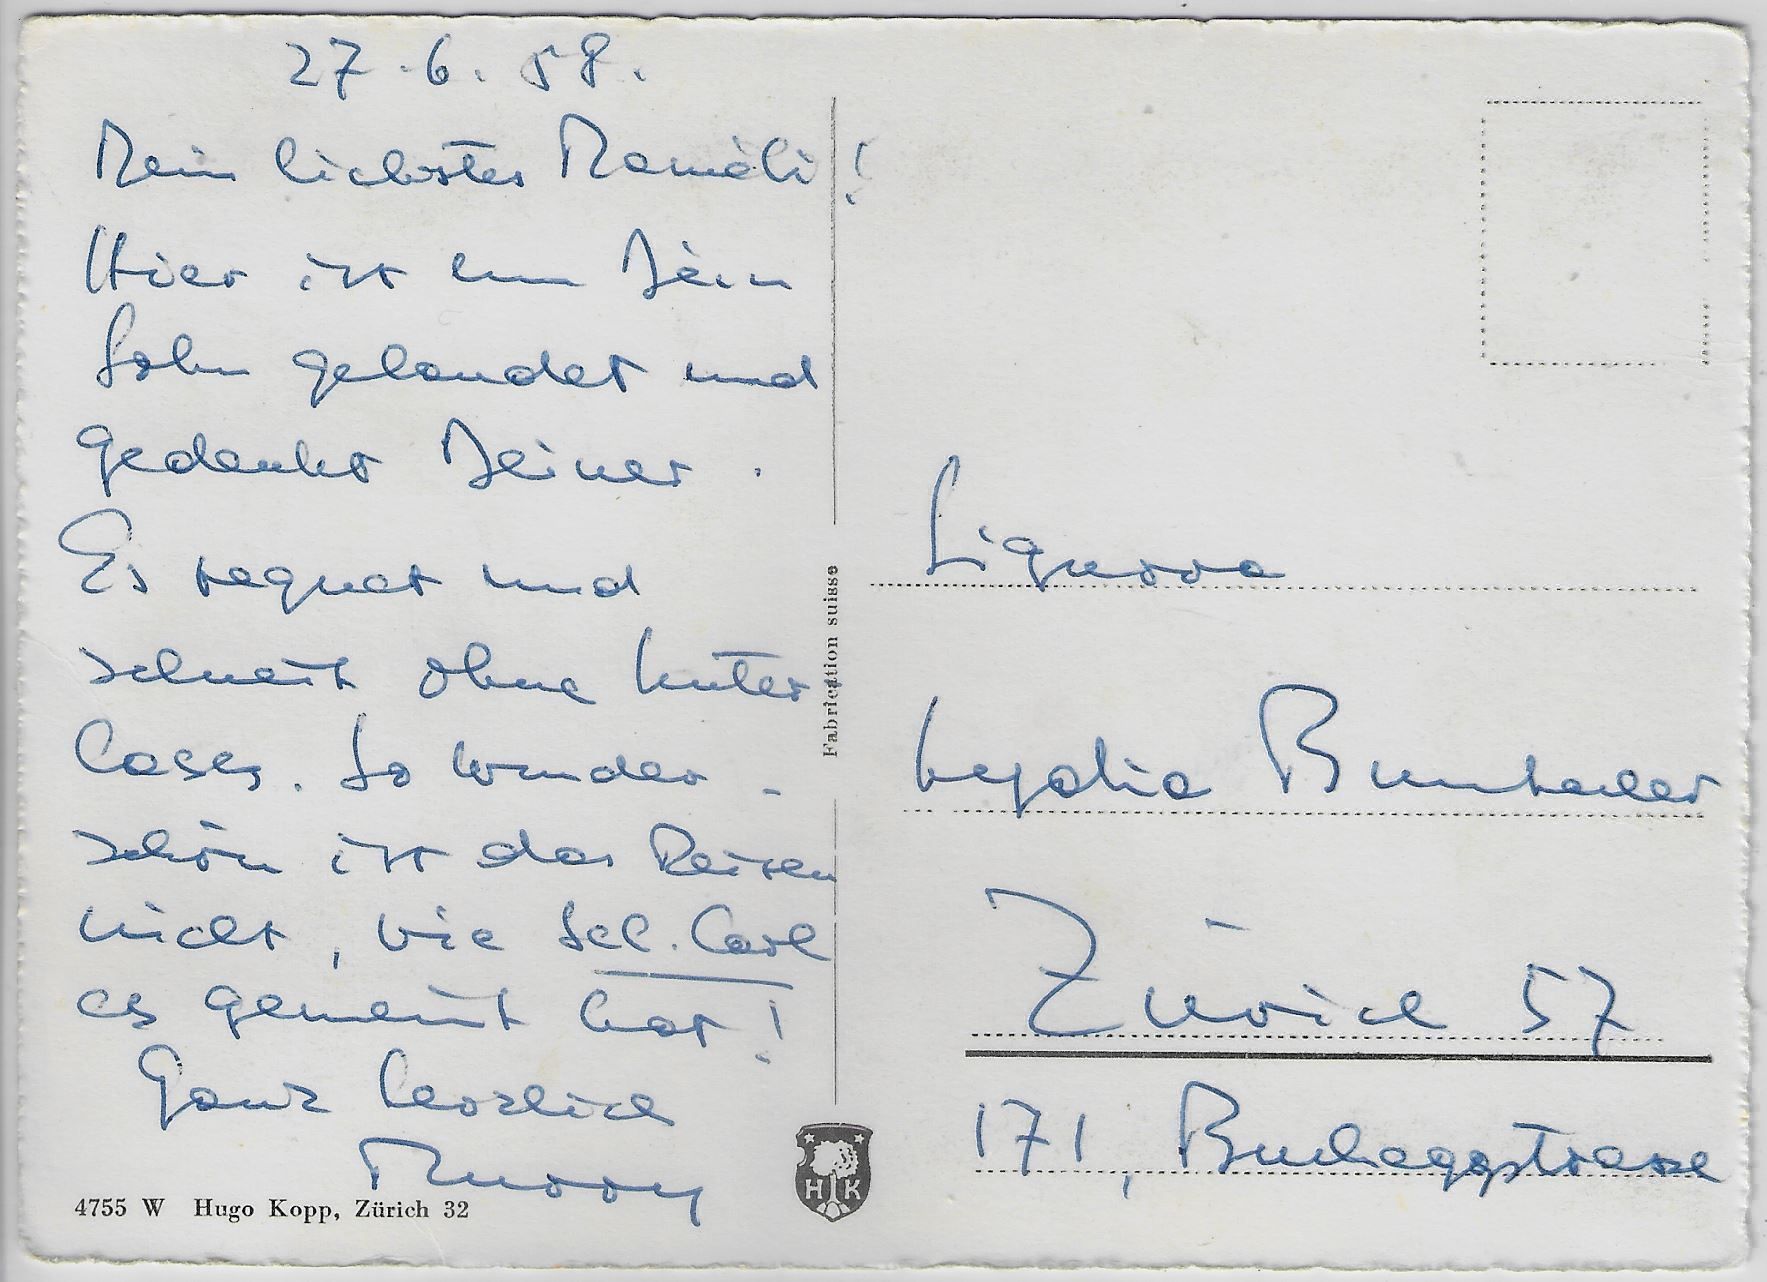 27.6.58.
Mein liebstes Mamäli!
Hier ist nun Dein
Sohn gelandet und
gedenkt Deiner.
Es regnet und
schneit ohne Unter
lass. So wunder-
schön ist das Reisen
nicht, wie Sel. Carl
es gemeint hat!
Ganz herzlich
4755 W Hugo Kopp, Zürich 32
Fabrication suisse
HK
Signora
Lydia
Zürich 57
171, Bucheggstrasse